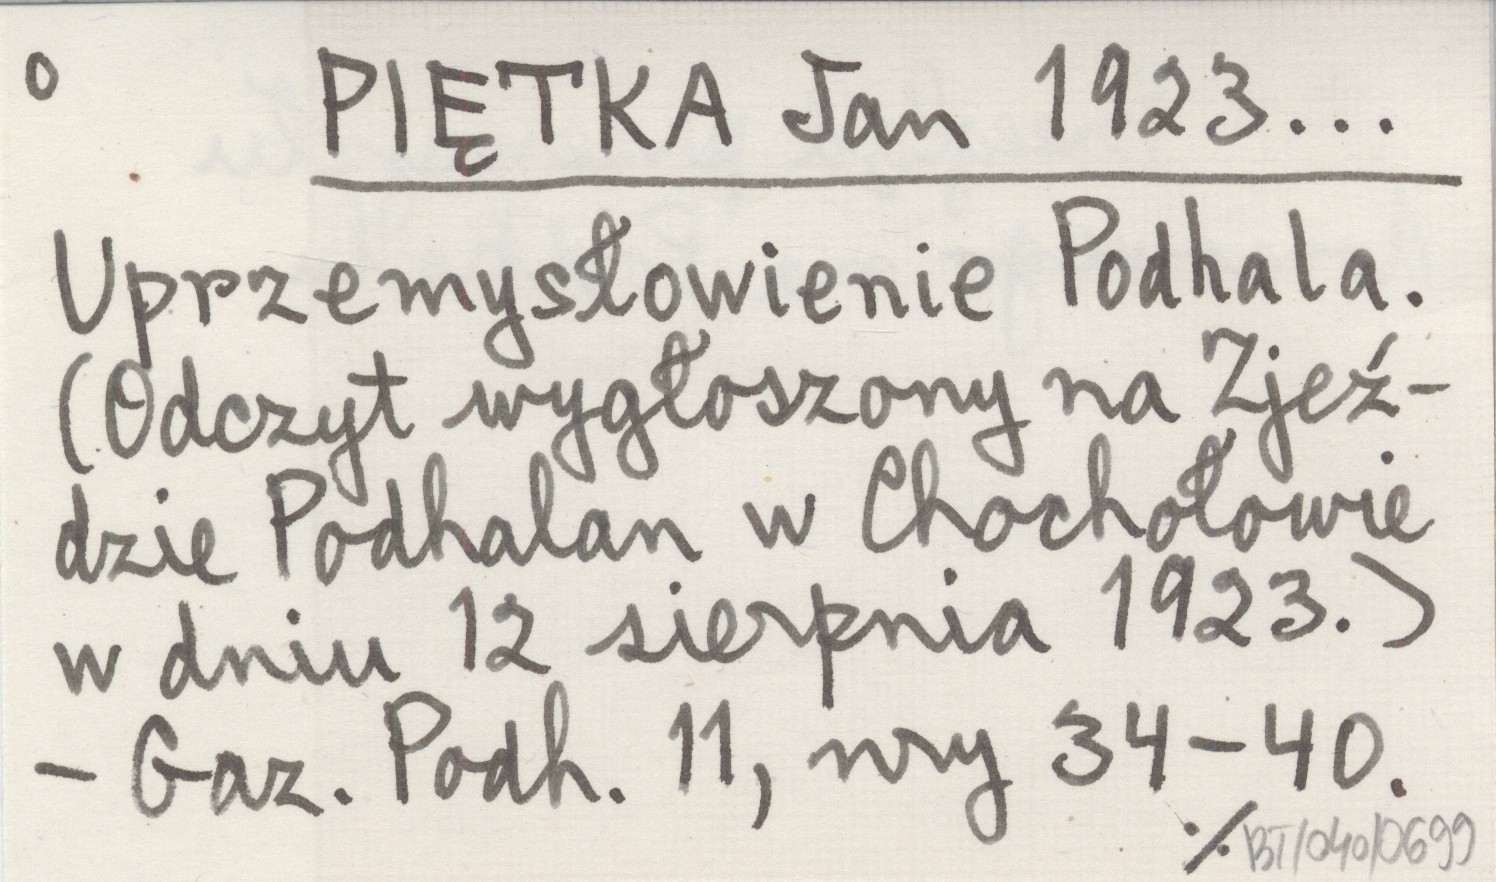 o PIĘTKA Jan 1923...
Uprzemysłowienie Podhala.
(Odczyt wygłoszony na Zjeź-
dzie Podhalan w Chochołowie
w dniu 12 sierpnia 1923.)
- Gaz. Podh. 11, nry 34-40.
./. BT/040/0699